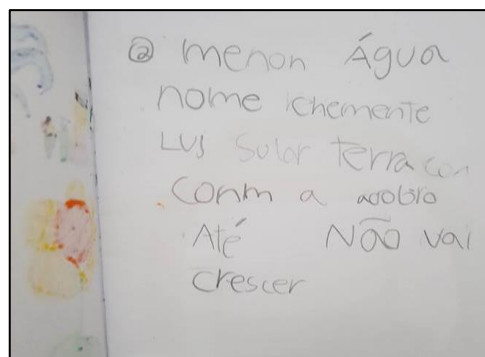 ② menon Água
nome chemente
LUS Solar terra con
conm a adobro
Até NÃO vai
crescer